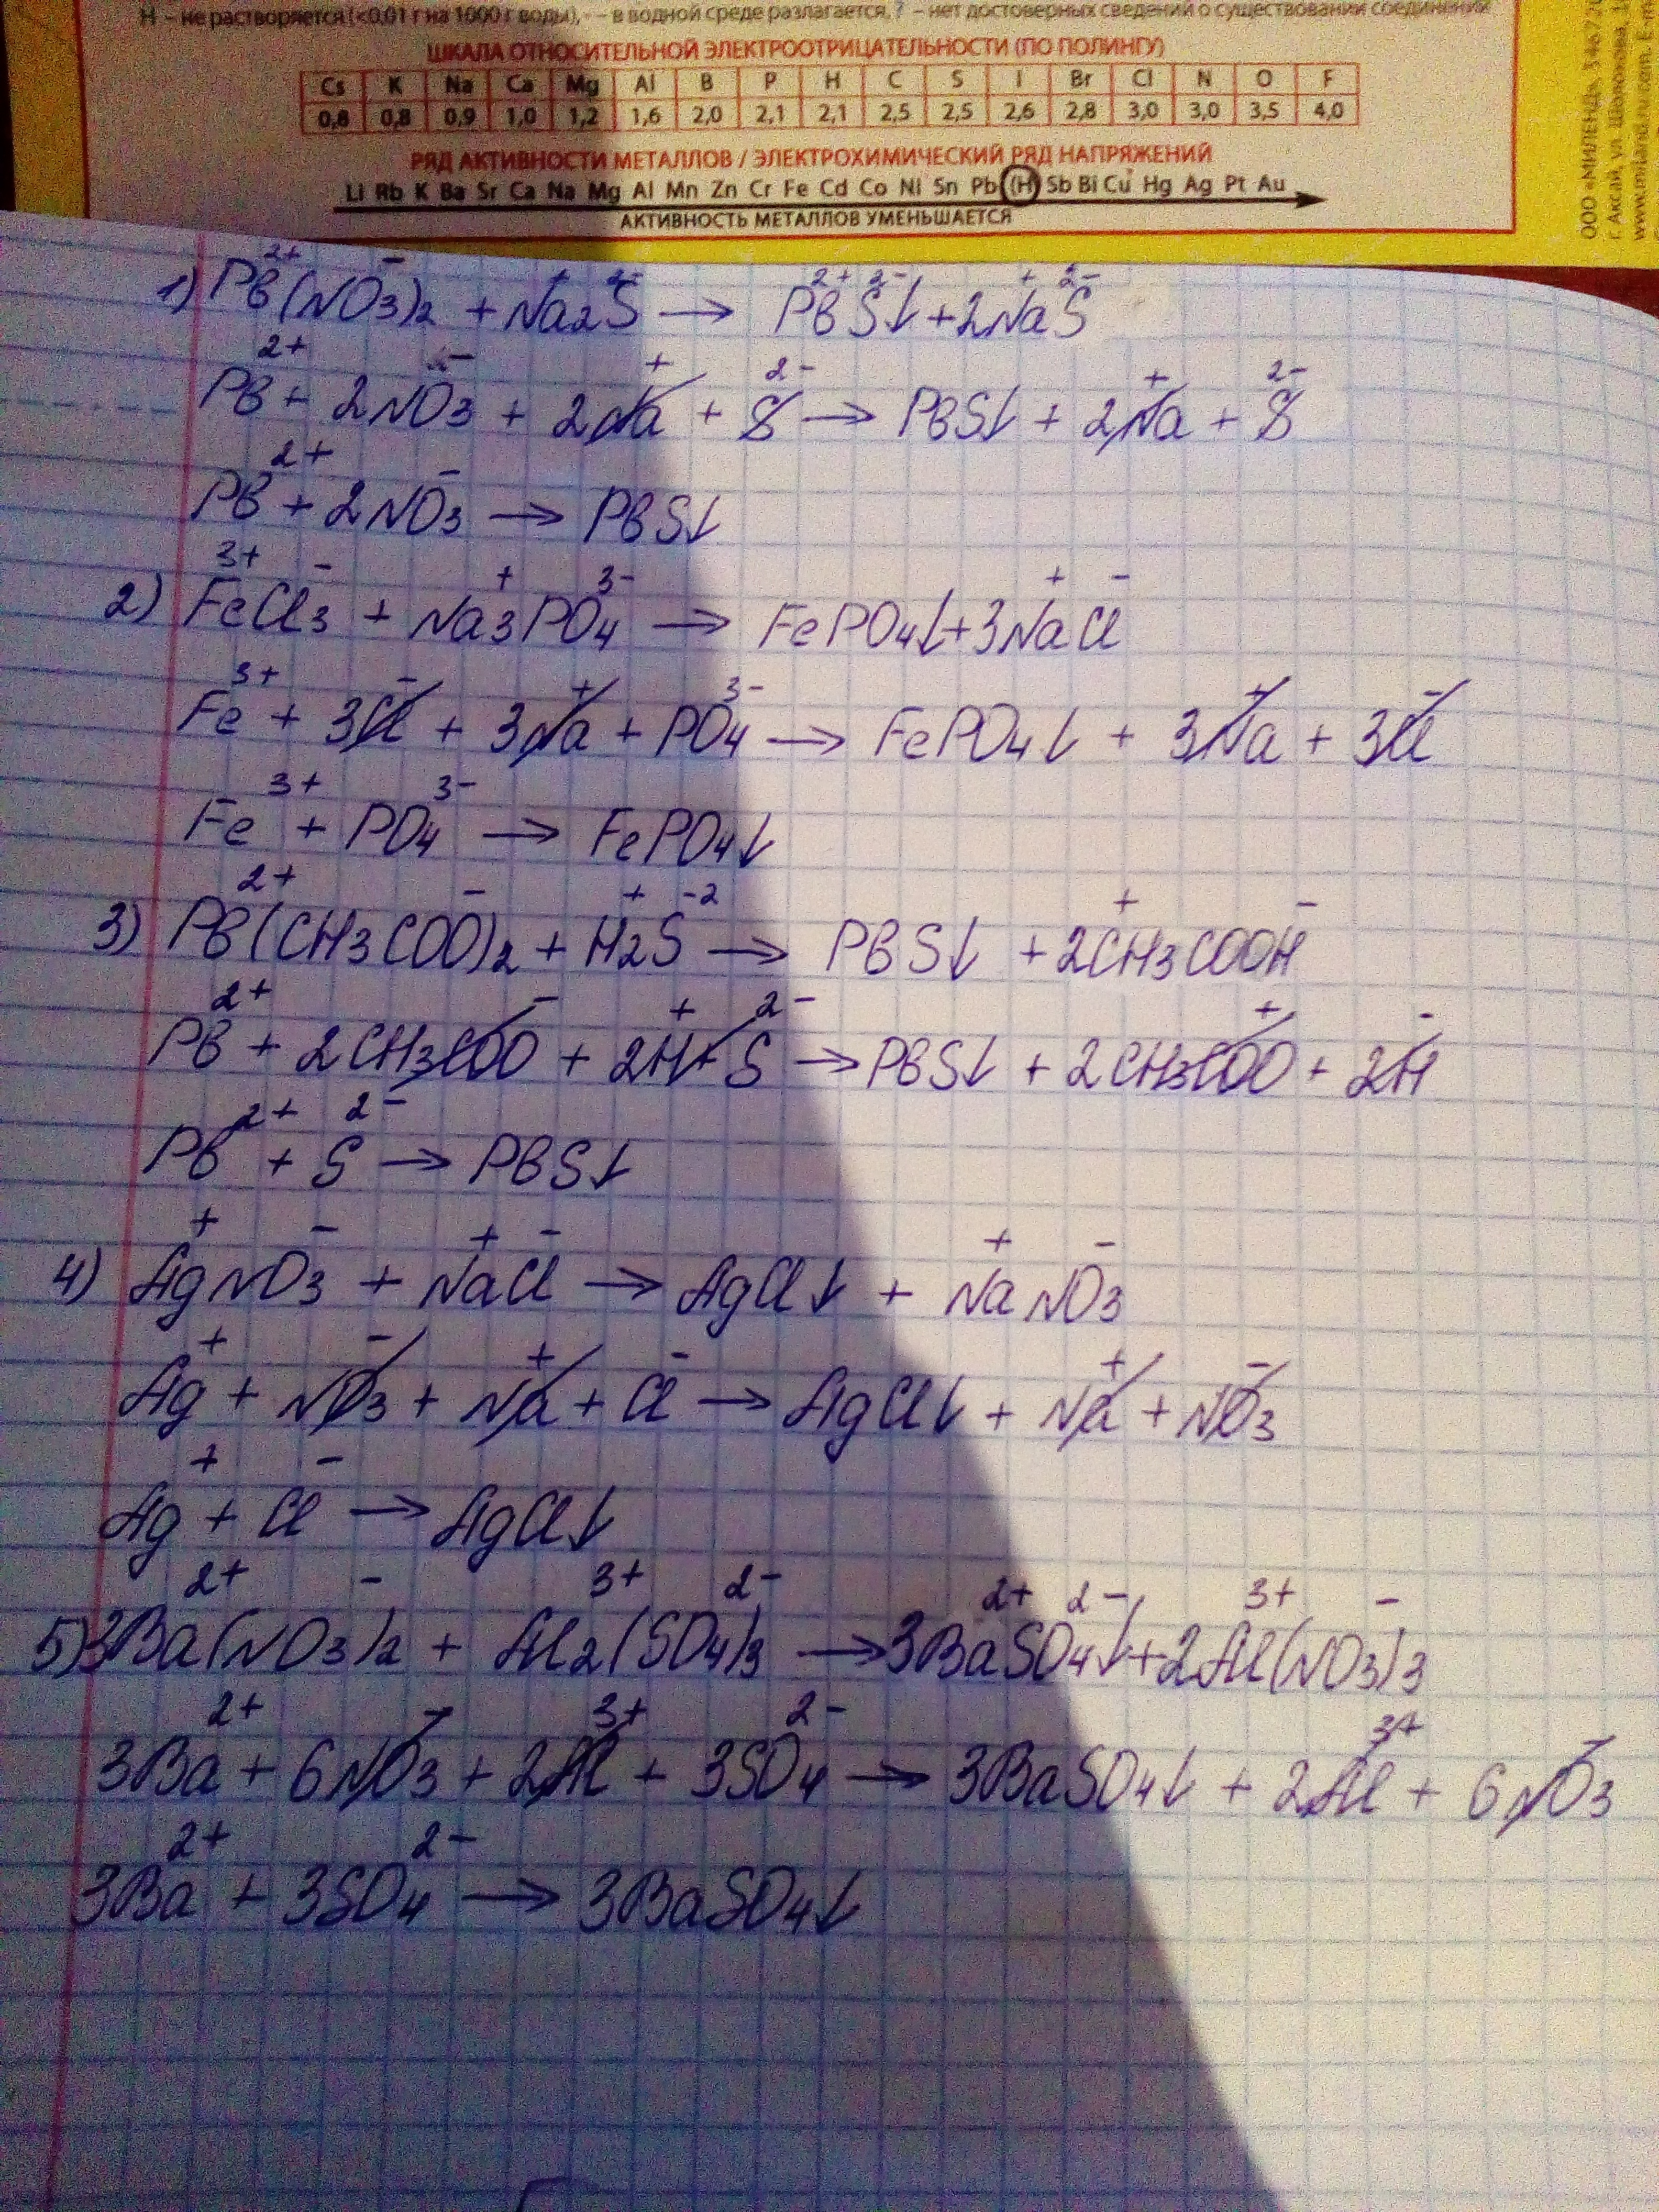 Н – не растворяется (<0,01 г на 1000 г воды), - – в водной среде разлагается, ? – нет достоверных сведений о существовании соединений
ШКАЛА ОТНОСИТЕЛЬНОЙ ЭЛЕКТРООТРИЦАТЕЛЬНОСТИ (ПО ПОЛИНГУ)
Cs K Na Ca Mg Al B P H C S I Br Cl N O F
0,8 0,8 0,9 1,0 1,2 1,6 2,0 2,1 2,1 2,5 2,5 2,6 2,8 3,0 3,0 3,5 4,0
РЯД АКТИВНОСТИ МЕТАЛЛОВ / ЭЛЕКТРОХИМИЧЕСКИЙ РЯД НАПРЯЖЕНИЙ
Li Rb K Ba Sr Ca Na Mg Al Mn Zn Cr Fe Cd Co Ni Sn Pb (H) Sb Bi Cu Hg Ag Pt Au
АКТИВНОСТЬ МЕТАЛЛОВ УМЕНЬШАЕТСЯ
ООО «МИЛЕНД»
г. Аксай, ул. Шолохова, 1
www.miland.ru.com. E-m
1) Pb²⁺(NO₃⁻)₂ + Na₂⁺S²⁻ → Pb²⁺S²⁻↓ + 2Na⁺S²⁻
Pb²⁺ + 2NO₃⁻ + 2Na⁺ + S²⁻ → PbS↓ + 2Na⁺ + S²⁻
Pb²⁺ + 2NO₃⁻ → PbS↓
2) Fe³⁺Cl₃⁻ + Na₃⁺PO₄³⁻ → FePO₄↓ + 3Na⁺Cl⁻
Fe³⁺ + 3Cl⁻ + 3Na⁺ + PO₄³⁻ → FePO₄↓ + 3Na⁺ + 3Cl⁻
Fe³⁺ + PO₄³⁻ → FePO₄↓
3) Pb²⁺(CH₃COO⁻)₂ + H₂⁺S⁻² → PbS↓ + 2CH₃⁺COOH⁻
Pb²⁺ + 2CH₃COO⁻ + 2H⁺ + S²⁻ → PbS↓ + 2CH₃COO⁺ + 2H⁻
Pb²⁺ + S²⁻ → PbS↓
4) Ag⁺NO₃⁻ + Na⁺Cl⁻ → AgCl↓ + Na⁺NO₃⁻
Ag⁺ + NO₃⁻ + Na⁺ + Cl⁻ → AgCl↓ + Na⁺ + NO₃⁻
Ag⁺ + Cl⁻ → AgCl↓
5) 3Ba²⁺(NO₃⁻)₂ + Al₂³⁺(SO₄²⁻)₃ → 3Ba²⁺SO₄²⁻↓ + 2Al³⁺(NO₃⁻)₃
3Ba²⁺ + 6NO₃⁻ + 2Al³⁺ + 3SO₄²⁻ → 3BaSO₄↓ + 2Al³⁺ + 6NO₃⁻
3Ba²⁺ + 3SO₄²⁻ → 3BaSO₄↓